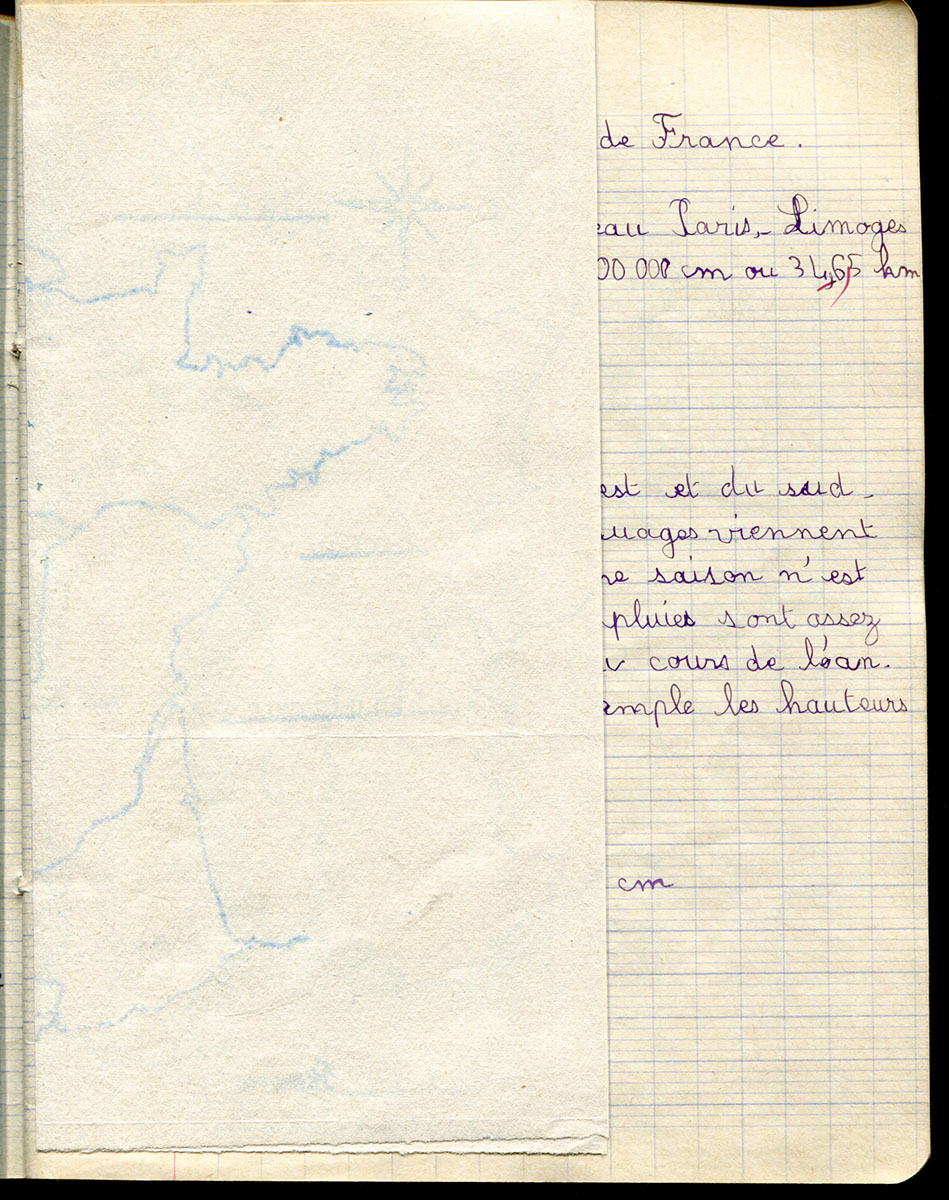 de France.
eau Paris,- Limoges
00 000 cm ou 34,65 km
est et du sud -
uages viennent
ne saison n'est
pluies sont assez
cours de l'an.
emple les hauteurs
cm